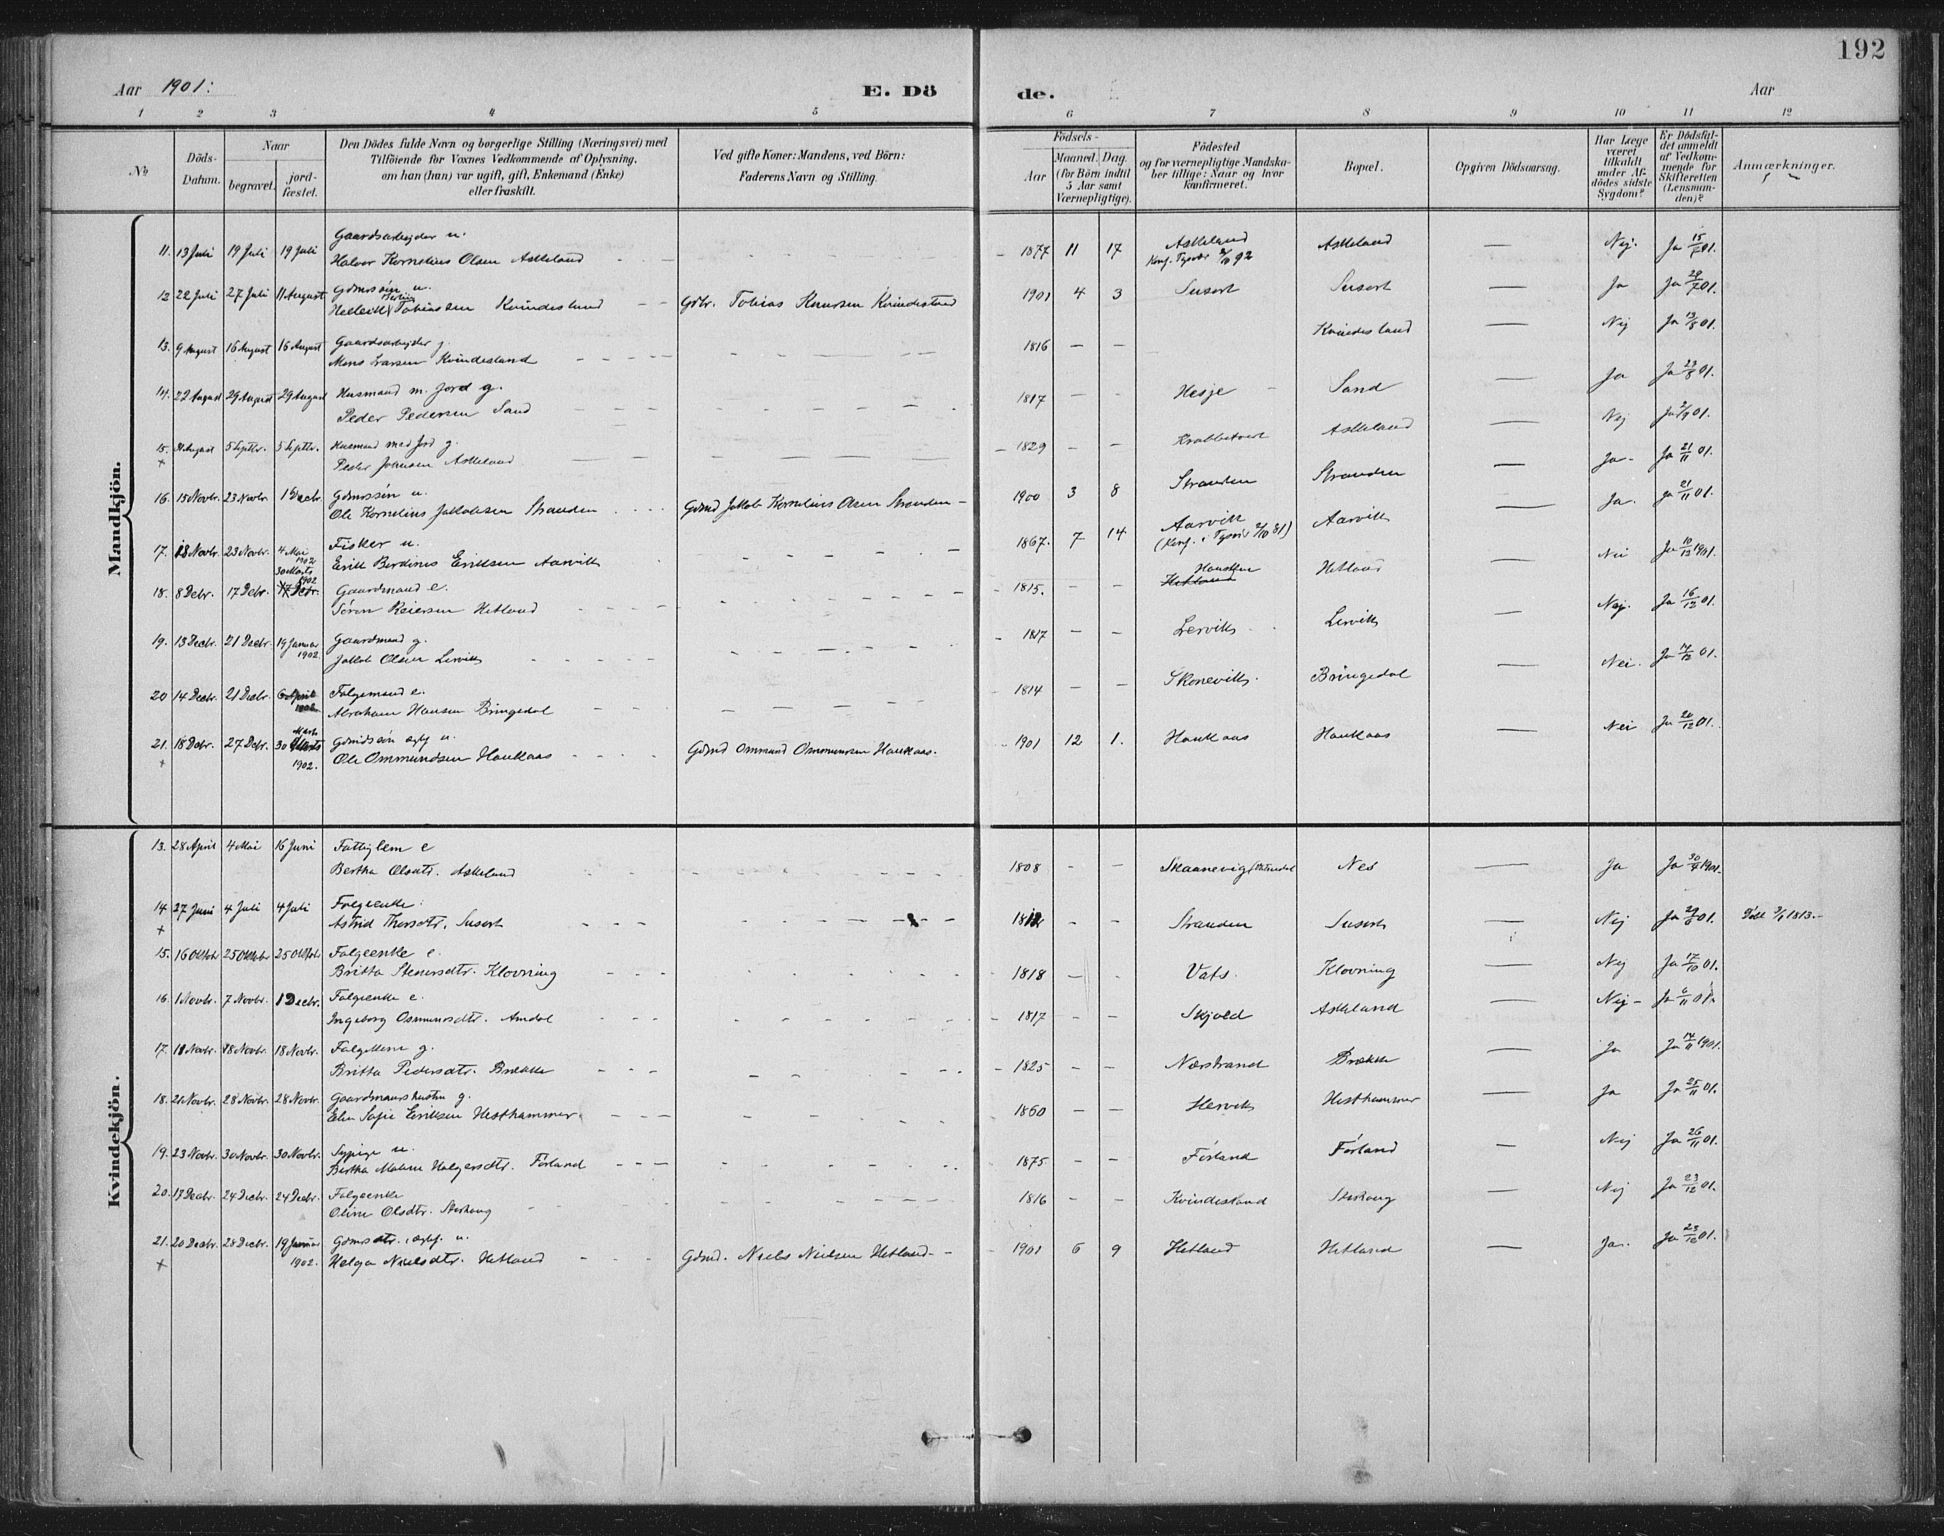 192
Aar 1901:
E. Dö
de.
Aar
1 2 3 4 5 6 7 8 9 10 11 12
No
Döds-Datum.
Naar
begravet.
jord-fæstet.
Den Dödes fulde Navn og borgerlige Stilling (Næringsvei) med
Tilföiende for Voxnes Vedkommende af Oplysning,
om han (hun) var ugift, gift, Enkemand (Enke)
eller fraskilt.
Ved gifte Koner: Mandens, ved Börn:
Faderens Navn og Stilling.
Födsels-
Aar
Maaned. Dag.
(for Börn indtil
5 Aar samt
Værnepligtige).
Födested
og for værnepligtige Mandska-
ber tillige: Naar og hvor
konfirmeret.
Bopæl.
Opgiven Dödsaarsag.
Har Læge
været
tilkaldt
under Af-
dödes sidste
Sygdom?
Er Dödsfal-
det anmeldt
af Vedkom-
mende for
Skifteretten
(Lensman-
den)?
Anmærkninger.
Mandkjön.
11. 13 Juli 19 Juli 19 Juli Gaardsarbejder u.
Halvor Kornelius Olsen Askeland 1877 11 17 Askeland Konf. Tysvær 2/10 92 Askeland — Nej. Ja 15/7 01.
12 22 Juli 27 Juli 11 August Gdmssøn u.
Tobiassen Kvindesland Gdbr. Tobias Knutsen Kvindesland 1901 4 3 Susort Susort — Ja Ja 29/7 01.
13. 9 August 16 August 16 August Gaardsarbejder g.
Mons Larsen Kvindesland 1816 — — Kvindesland — Nej Ja 13/8 01.
14. 22 August 29 August 29 August Husmand m. Jord g.
Peder Pedersen Sand 1817 — — Hesje Sand — Ja Ja 23/8 01.
15. + 31 August 5 Septbr. 5 Septbr. Husmand med Jord g.
Peder Johnsen Askeland 1829 — — Krabbetveit Askeland — Nej Ja 2/9 01.
16. 15 Novbr. 23 Novbr. 1 Decbr. Gdmssøn u.
Ole Kornelius Jakobsen Stranden Gdmd Jakob Kornelius Olsen Stranden 1900 3 8 Stranden Stranden — Ja. Ja 21/11 01.
17. 18 Novbr. 23 Novbr. 4 Mai 1902 Fisker u.
Erik Berdines Eriksen Aarvik 1867. 7 14 Aarvik (Konf. i Tysvær 2/10 81) Aarvik — Ja. Ja 21/11 01.
18. 8 Debr. 17 Debr. 30 Marts 1902 17 Debr. Gaardmand e.
Søren Reiersen Hetland 1815. Hetland Hetland — Nei Ja 10/12 1901.
19. 13 Decbr. 21 Decbr. 19 Januar 1902. Gaardmand g.
Jakob Olsen Lervik 1817 — — Lervik Lervik — Nej. Ja 16/12 01.
20 14 Decbr. 21 Decbr. 6 April 1902. Folgemand e.
Abraham Hansen Bringedal 1814 — — Skonevik. Bringedal — Nei. Ja 17/12 01.
21. + 18 Debr. 27 Debr. 30 Marts 1902. Gdmdssøn ægtf u.
Ole Ommundsen Haukaas Gdmd Ommund Ommundsen Haukaas. 1901 12 1. Haukaas Haukaas — Nei Ja 20/12 01.
Kvindekjön.
13. 28 April 4 Mai 16 Juni Fattiglem e
Bertha Olsdtr. Askeland 1808 — — Skaanevig Nes — Ja Ja 30/4 1901.
14 + 27 Juni 4 Juli 4 Juli Folgeenke.
Astrid Thorsdtr. Susort 1812 Stranden Susort — Nej Ja 29/6 01. Født 3/1 1813.-
15. 16 Oktobr 25 Oktobr 25 Oktobr Folgeenke e.
Britta Stenersdtr. Klovning 1818 — Vats. Klovning — Nej Ja 17/10 01.
16. 1 Novbr. 7 Novbr. 1 Decbr. Folgeenke e.
Ingeborg Osmundsdtr. Amdal 1817 — — Skjold Askeland — Nej Ja 6/11 01.
17. 11 Novbr. 18 Novbr. 18 Novbr. g.
Britta Pedersdtr. Brække 1825 — — Nærstrand Brække — Ja Ja 14/11 1901.
18. 21 Novbr. 28 Novbr. 28 Novbr. Gaardmandshustru g.
Elen Sofie Eriksen Hesthammer 1860 — — Hervik Hesthammer — Ja Ja 25/11 01.
19. 23 Novbr. 30 Novbr. 30 Novbr. Sypige u.
Bertha Malene Holgersdtr. Førland 1875 — — Førland Førland — Nej Ja 26/11 01.
20. 17 Decbr. 24 Decbr. 24 Decbr. Folgeenke
Oline Olsdtr. 1816 — — Kvindesland — Nej Ja 23/12 01.
21. + 20 Decbr. 28 Decbr. 19 Januar 1902. Gdmsdtr. ægtf. u.
Helga Nielsdtr. Hetland Gdmd. Niels Nielsen Hetland 1901 6 9 Hetland Hetland — Ja. Ja 23/12 01.